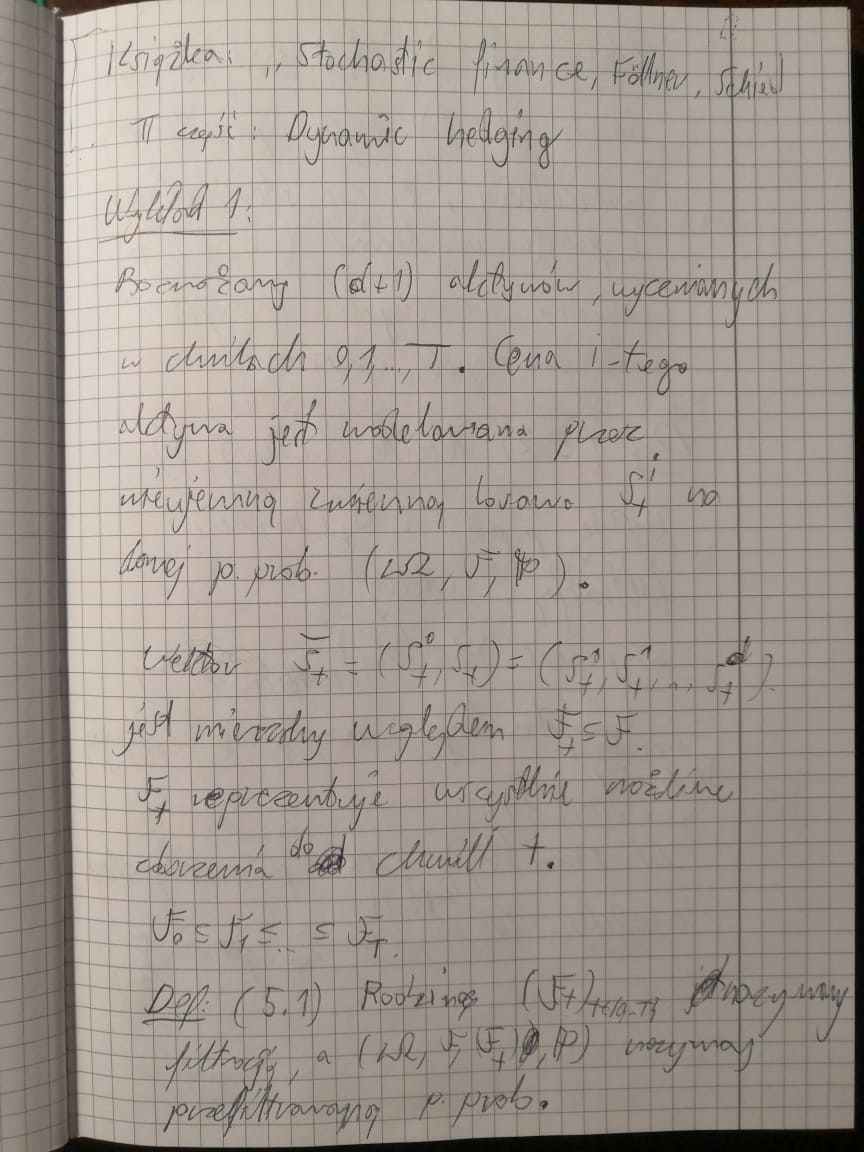 Książka: „Stochastic finance, Föllmer, Schied
II część: Dynamic hedging
Wykład 1:
Rozważamy (d+1) aktywów, wycenianych
w chwilach 0,1,..,T. Cena i-tego
aktywa jest modelowana przez
nieujemną zmienną losową S_t^i na
danej p. prob. (Ω, F, P).
Wektor S̄_t = (S_t^0, S_t) = (S_t^0, S_t^1, .., S_t^d).
jest mierzalny względem F_t ⊆ F.
F_t reprezentuje wszystkie możliwe
zdarzenia do chwili t.
F_0 ⊆ F_1 ⊆ .. ⊆ F_T.
Def: (5.1) Rodzinę (F_t)_{t∈{0..T}} nazywamy
filtracją, a (Ω, F, (F_t), P) nazywamy
przefiltrowaną p. prob.